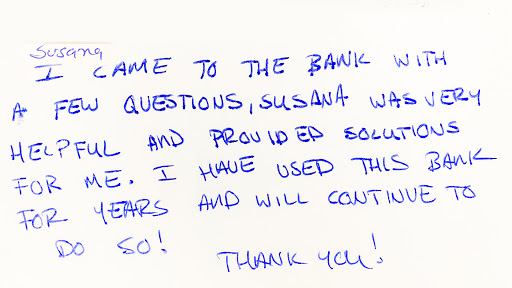 Susana
I CAME TO THE BANK WITH
A FEW QUESTIONS, SUSANA WAS VERY
HELPFUL AND PROVIDED SOLUTIONS
FOR ME. I HAVE USED THIS BANK
FOR YEARS AND WILL CONTINUE TO
DO SO!
THANK YOU!